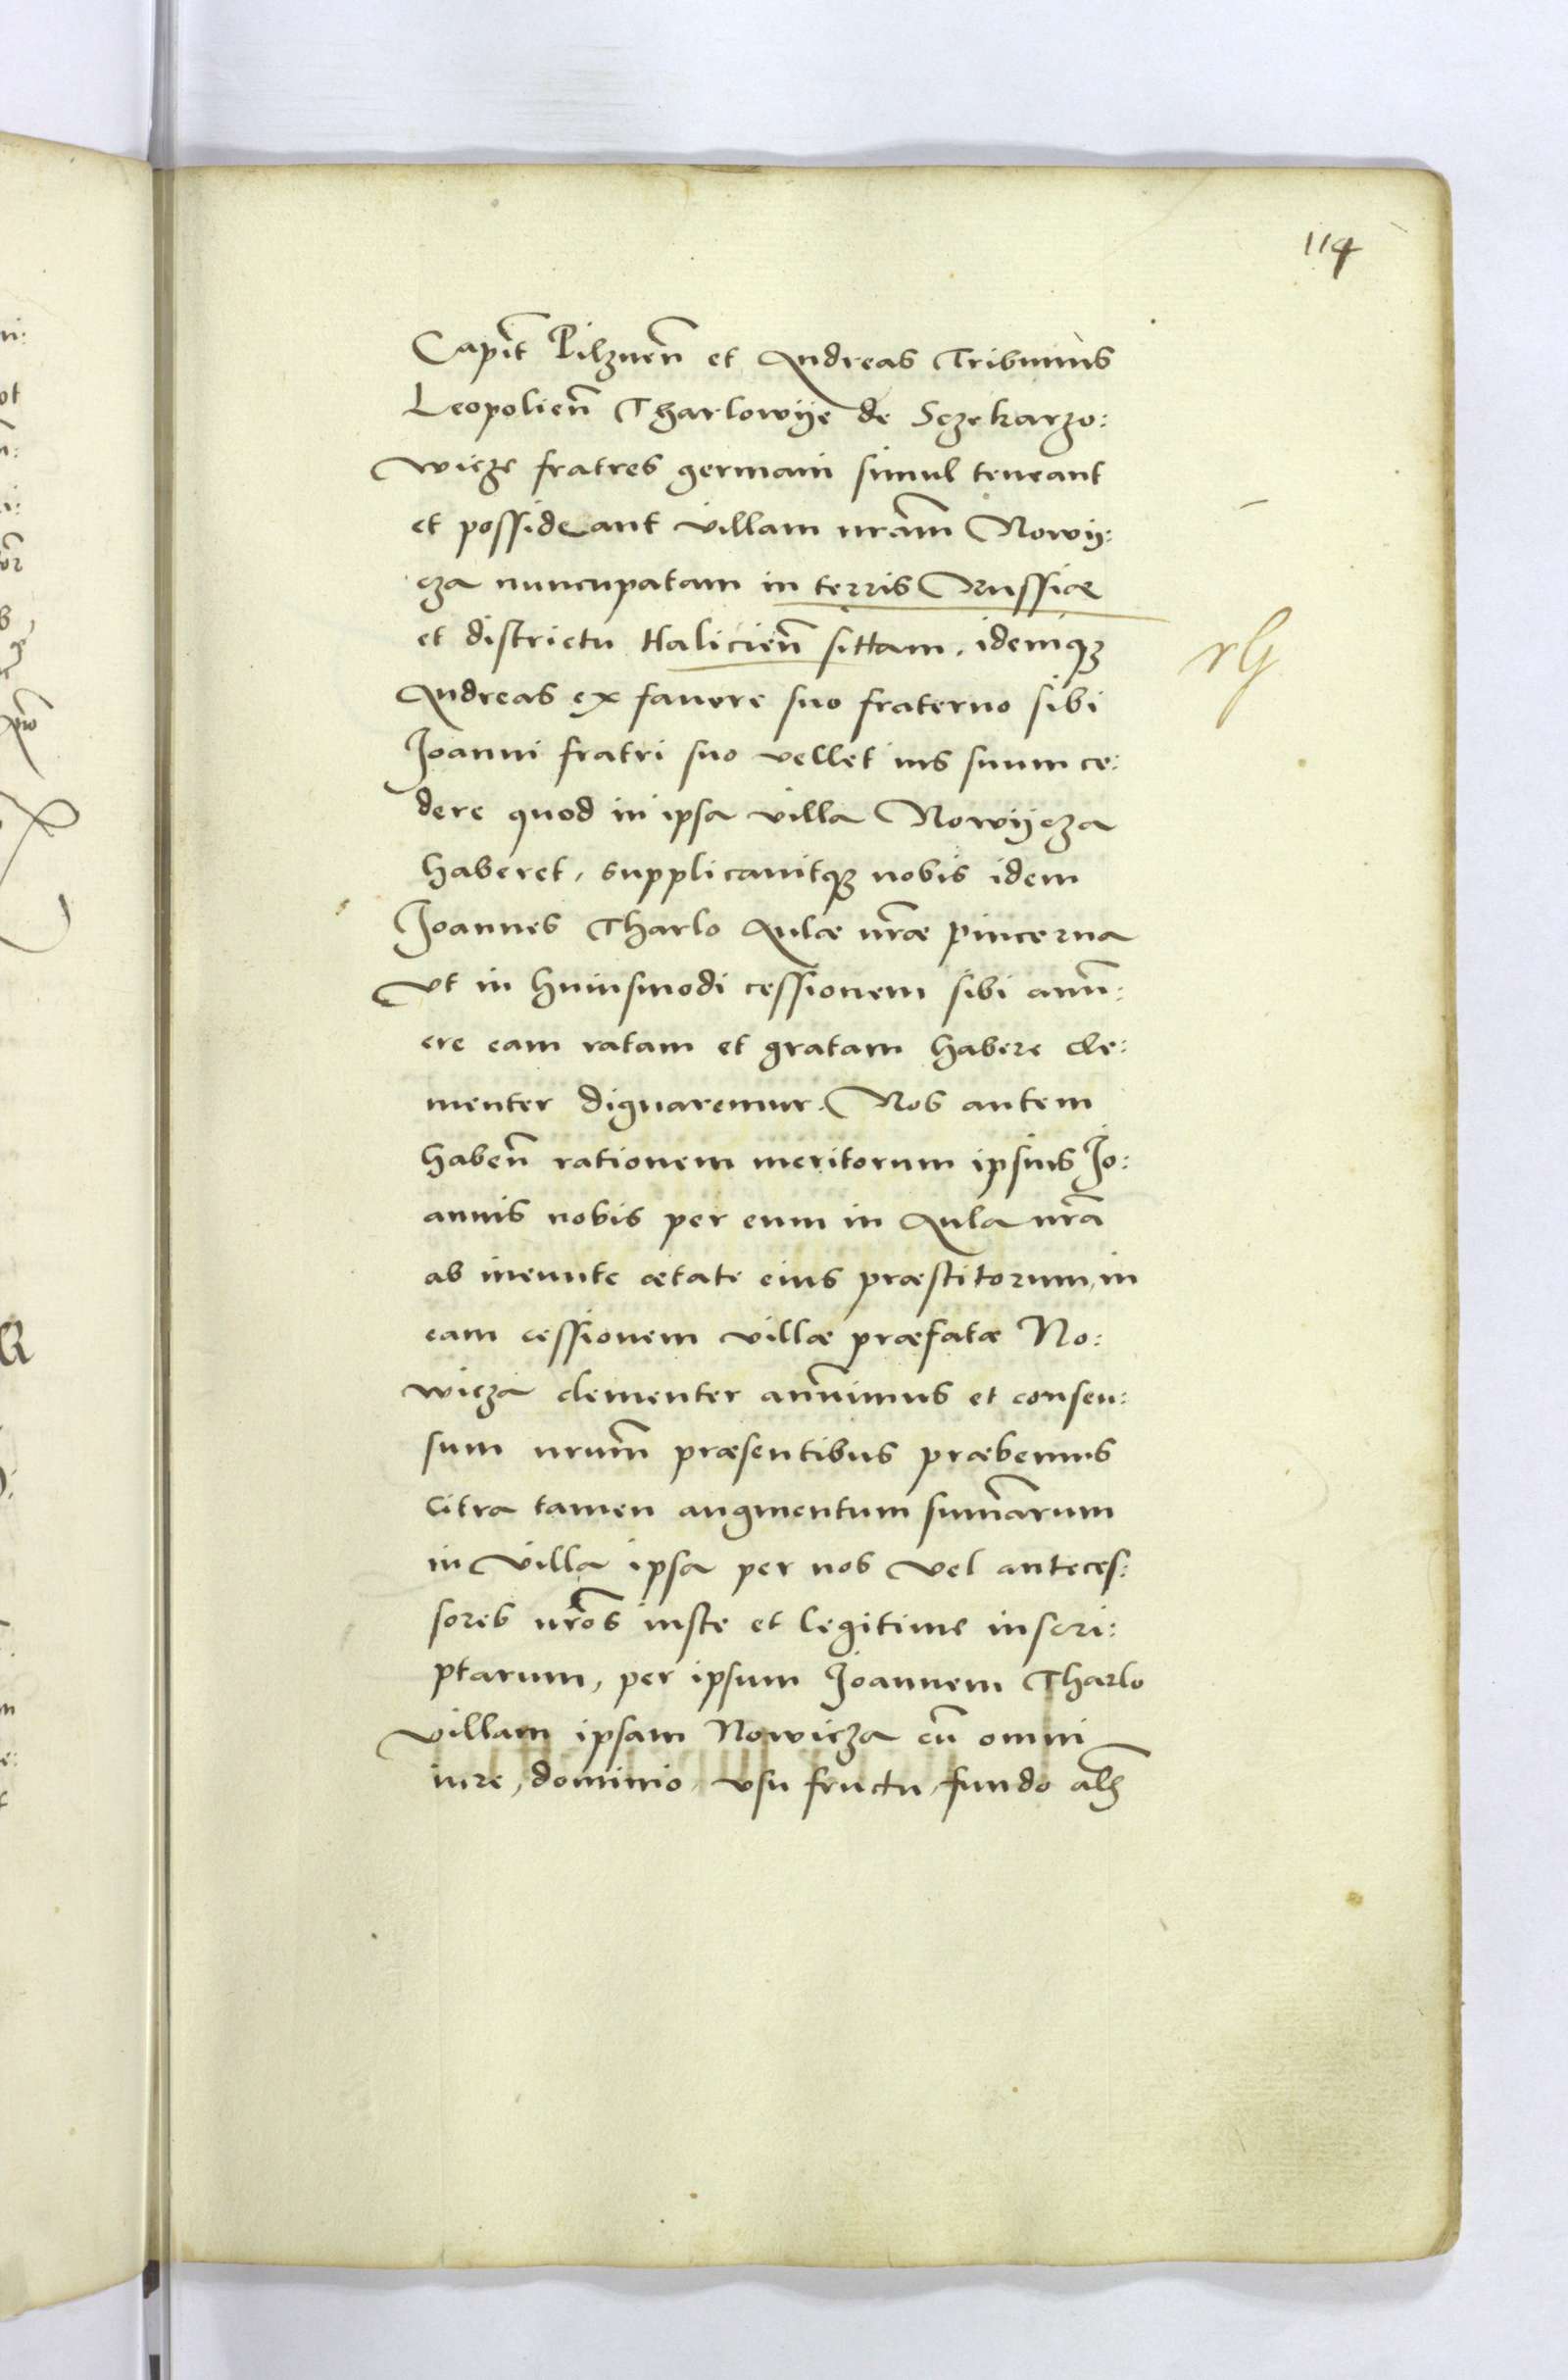 114
Capit̃ Pilznen̄ et Andreas Tribunus
Leopolien̄ Tharlowije de Sczekarzo:
wicze fratres germani simul teneant
et possideant villam nrām Nowij:
cza nuncupatam in terris Russiæ
et districtu Halicien̄ sittam, idemqꝫ
Andreas ex favore suo fraterno sibi
Joanni fratri suo vellet ius suum ce:
dere quod in ipsa villa Nowijcza
haberet, supplicavitqꝫ nobis idem
Joannes Tharlo Aulæ nr̄æ pincerna
vt in huiusmodi cessionem sibi annu:
ere eam ratam et gratam habere cle:
menter dignaremur. Nos autem
haben̄ rationem meritorum ipsius Jo:
annis nobis per eum in Aula nrā
ab ineunte ætate eius præstitorum, in
eam cessionem villæ præfatæ No:
wicza clementer ann̄uimus et consen:
sum nrum̄ præsentibus præbemus
citra tamen augmentum sum̄arum
in villa ipsa per nos vel anteces:
sores nrōs iuste et legitime inscri:
ptarum, per ipsum Joannem Tharlo
villam ipsam Nowicza cū omni
iure, dominio, vsu fructu, fundo